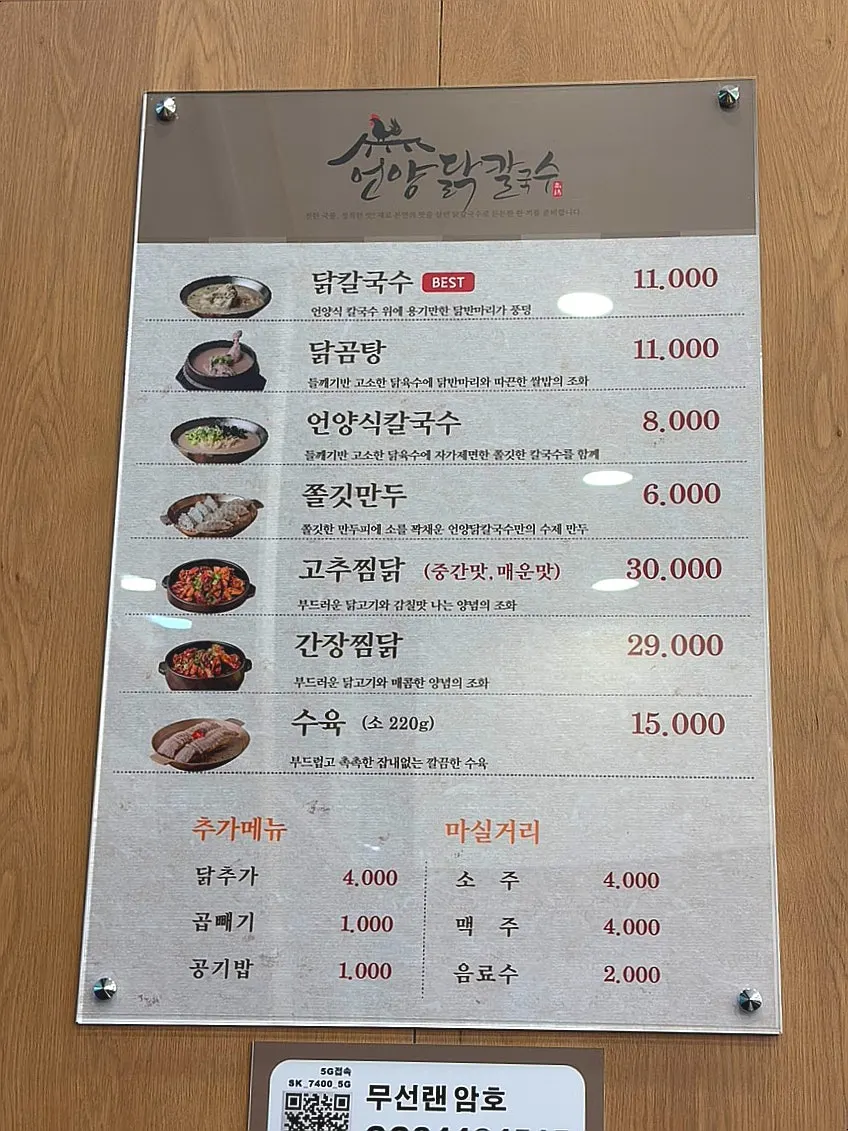 언양닭칼국수
닭칼국수 BEST 11.000
언양식 칼국수 위에 용기만한 닭반마리가 풍덩
닭곰탕 11.000
들깨기반 고소한 닭육수에 닭반마리와 따끈한 쌀밥의 조화
언양식칼국수 8.000
들깨기반 고소한 닭육수에 자가제면한 쫄깃한 칼국수를 함께
쫄깃만두 6.000
쫄깃한 만두피에 소를 꽉채운 언양닭칼국수만의 수제 만두
고추찜닭 (중간맛,매운맛) 30.000
부드러운 닭고기와 감칠맛 나는 양념의 조화
간장찜닭 29.000
부드러운 닭고기와 매콤한 양념의 조화
수육 (소 220g) 15.000
부드럽고 촉촉한 잡내없는 깔끔한 수육
추가메뉴
닭추가 4.000
곱빼기 1.000
공기밥 1.000
마실거리
소 주 4.000
맥 주 4.000
음료수 2.000
5G접속
SK_7400_5G
무선랜 암호